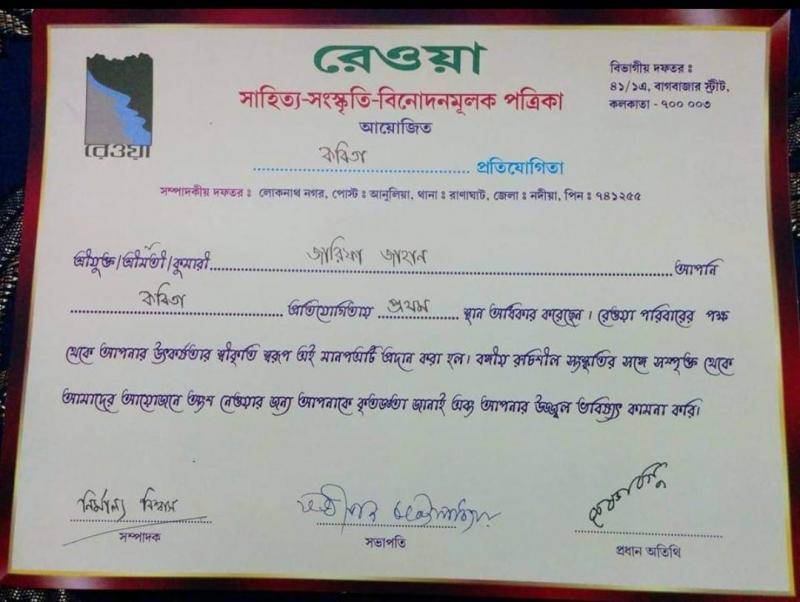 রেওয়া
সাহিত্য-সংস্কৃতি-বিনোদনমূলক পত্রিকা
আয়োজিত
কবিতা প্রতিযোগিতা
বিভাগীয় দফতর ঃ
৪১/১এ, বাগবাজার স্ট্রীট,
কলকাতা - ৭০০ ০০৩
রেওয়া
সম্পাদকীয় দফতর ঃ লোকনাথ নগর, পোস্ট ঃ আনুলিয়া, থানা ঃ রাণাঘাট, জেলা ঃ নদীয়া, পিন ঃ ৭৪১২৫৫
শ্রীযুক্ত/শ্রীমতী/কুমারী জারিফা জাহান আপনি
কবিতা প্রতিযোগিতায় প্রথম স্থান অধিকার করেছেন। রেওয়া পরিবারের পক্ষ
থেকে আপনার উৎকর্ষতার স্বীকৃতি স্বরূপ এই মানপত্রটি প্রদান করা হল। বঙ্গীয় রুচিশীল সংস্কৃতির সঙ্গে সম্পৃক্ত থেকে
আমাদের আয়োজনে অংশ নেওয়ার জন্য আপনাকে কৃতজ্ঞতা জানাই এবং আপনার উজ্জ্বল ভবিষ্যৎ কামনা করি।
নির্মাল্য বিশ্বাস
সম্পাদক
চট্টোপাধ্যায়
সভাপতি
প্রধান অতিথি